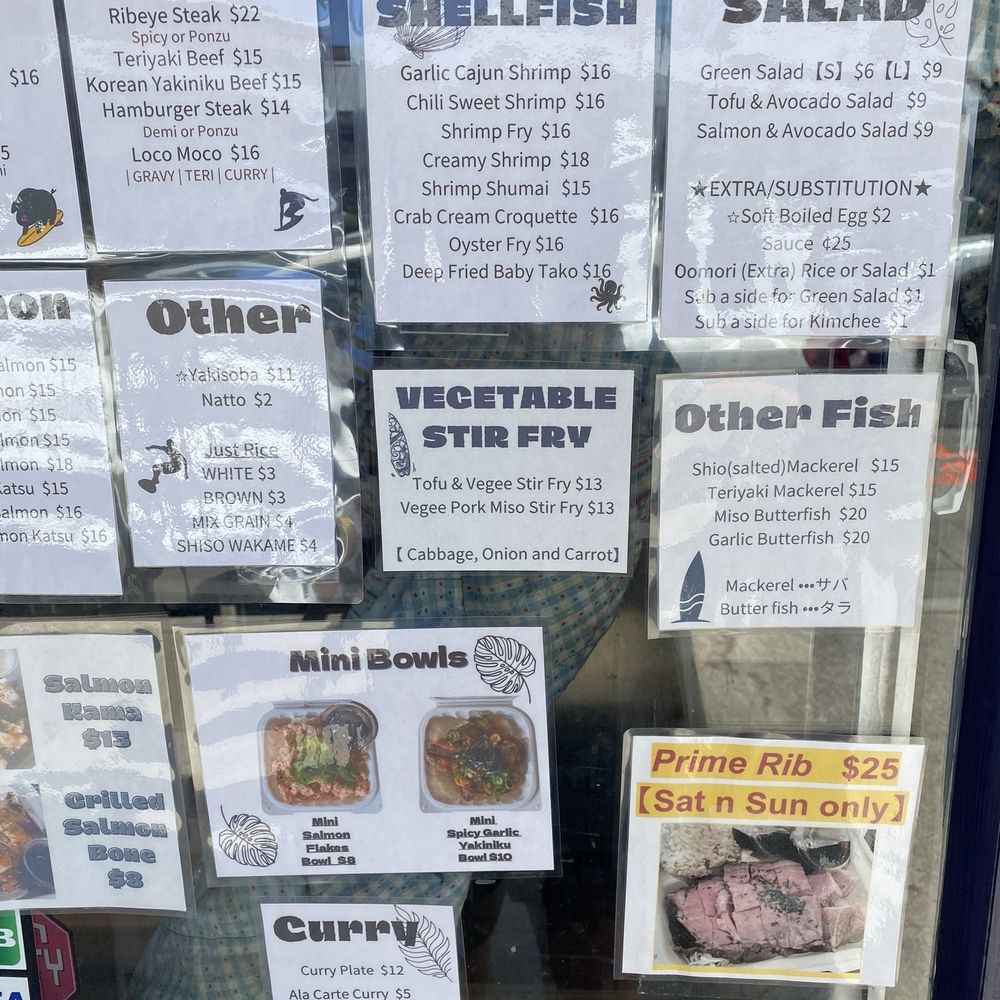 $16
Ribeye Steak $22
Spicy or Ponzu
Teriyaki Beef $15
Korean Yakiniku Beef $15
Hamburger Steak $14
Demi or Ponzu
Loco Moco $16
| GRAVY | TERI | CURRY |
SHELLFISH
Garlic Cajun Shrimp $16
Chili Sweet Shrimp $16
Shrimp Fry $16
Creamy Shrimp $18
Shrimp Shumai $15
Crab Cream Croquette $16
Oyster Fry $16
Deep Fried Baby Tako $16
SALAD
Green Salad【S】$6【L】$9
Tofu & Avocado Salad $9
Salmon & Avocado Salad $9
★EXTRA/SUBSTITUTION★
☆Soft Boiled Egg $2
Sauce ¢25
Oomori (Extra) Rice or Salad $1
Sub a side for Green Salad $1
Sub a side for Kimchee $1
$15
$15
$15
$15
$18
Katsu $15
$16
Katsu $16
Other
☆Yakisoba $11
Natto $2
Just Rice
WHITE $3
BROWN $3
MIX GRAIN $4
SHISO WAKAME $4
VEGETABLE
STIR FRY
Tofu & Vegee Stir Fry $13
Vegee Pork Miso Stir Fry $13
【 Cabbage, Onion and Carrot】
Other Fish
Shio(salted)Mackerel $15
Teriyaki Mackerel $15
Miso Butterfish $20
Garlic Butterfish $20
Mackerel •••サバ
Butter fish •••タラ
Salmon
Kama
$13
Grilled
Salmon
Bone
$8
Mini Bowls
Mini
Salmon
Flakes
Bowl $8
Mini
Spicy Garlic
Yakiniku
Bowl $10
Prime Rib $25
【Sat n Sun only】
Curry
Curry Plate $12
Ala Carte Curry $5